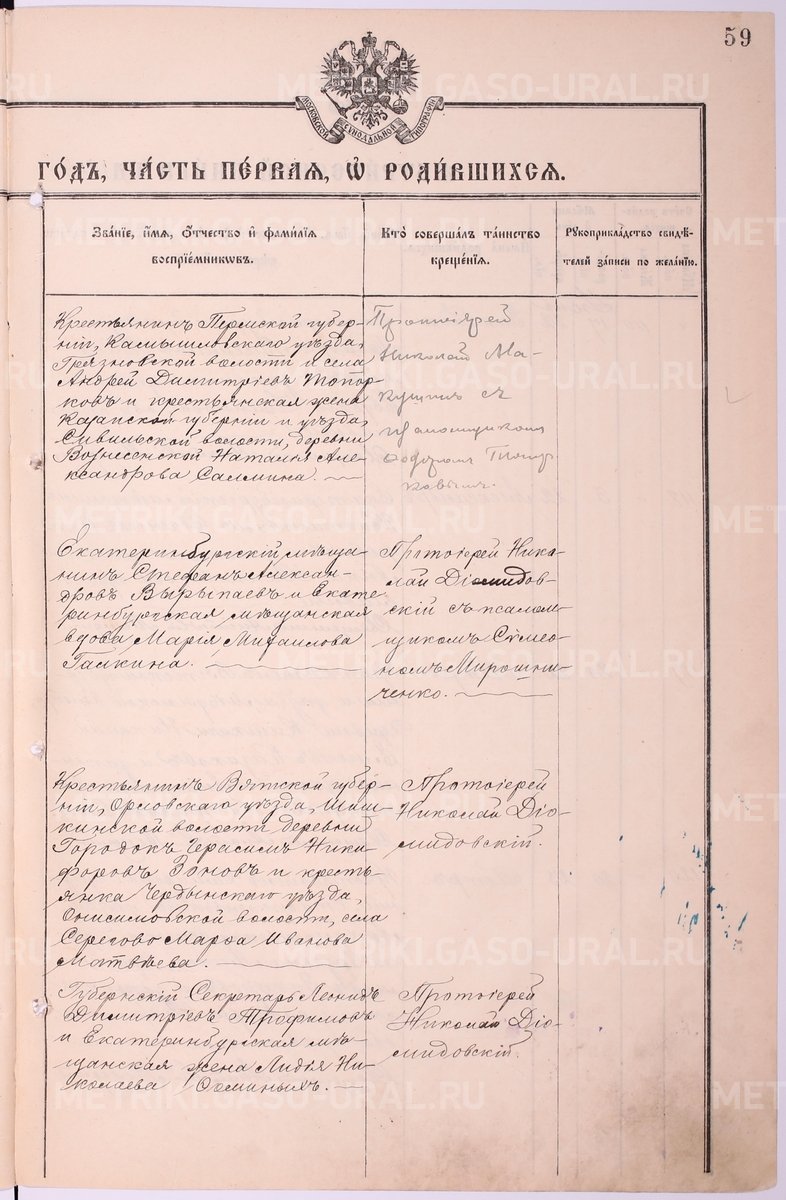 59
МОСКОВСКОЙ СѴНОДАЛЬНОЙ ТИПОГРАФІИ
ГО́ДЪ, ЧА́СТЬ ПЕ́РВАЯ, Ѡ҆ РОДИ́ВШИХСЯ.
Зва́нїе, и҆́мѧ, ѻ҆́тчество и҆ фами́лїѧ
воспрїе́мникѡвъ.
Кто̀ соверша́лъ та́инство
креще́нїѧ.
Рꙋкоприкла́дство свидѣ́-
телей за́писи по жела́нїю.
Крестьянинъ Пермской губер-
ніи, Камышловскаго уѣзда,
Грязновской волости и села
Андрей Димитріевъ Топор-
ковъ и крестьянская жена
Казанской губерніи и уѣзда,
Сивильской волости, деревни
Вознесенской Наталія Але-
ксандрова Салмина.
Протоіерей
Николай Ма-
кушинъ съ
псаломщикомъ
Топор-
ковымъ.
Екатеринбургскій мѣща-
нинъ Стефанъ Алексан-
дровъ Вырыпаевъ и Екате-
ринбургская мѣщанская
вдова Марія Михаилова
Галкина.
Протоіерей Нико-
лай Діомидов-
скій съ псалом-
щикомъ Сѵмео-
номъ Мирошни-
ченко.
Крестьянинъ Вятской губер-
ніи, Орловскаго уѣзда, Шиш-
кинской волости деревни
Городокъ Герасимъ Ники-
форовъ Зоновъ и кресть-
янка Чердынскаго уѣзда,
Онисимовской волости, села
Серегово Марѳа Иванова
Матвѣева.
Протоіерей
Николай Діо-
мидовскій.
Губернскій Секретарь Леонидъ
Димитріевъ Трофимовъ
и Екатеринбургская мѣ-
щанская жена Лидія Ни-
колаева Ѳоминыхъ.
Протоіерей
Николай Діо-
мидовскій.
METRIKI.GASO-URAL.RU